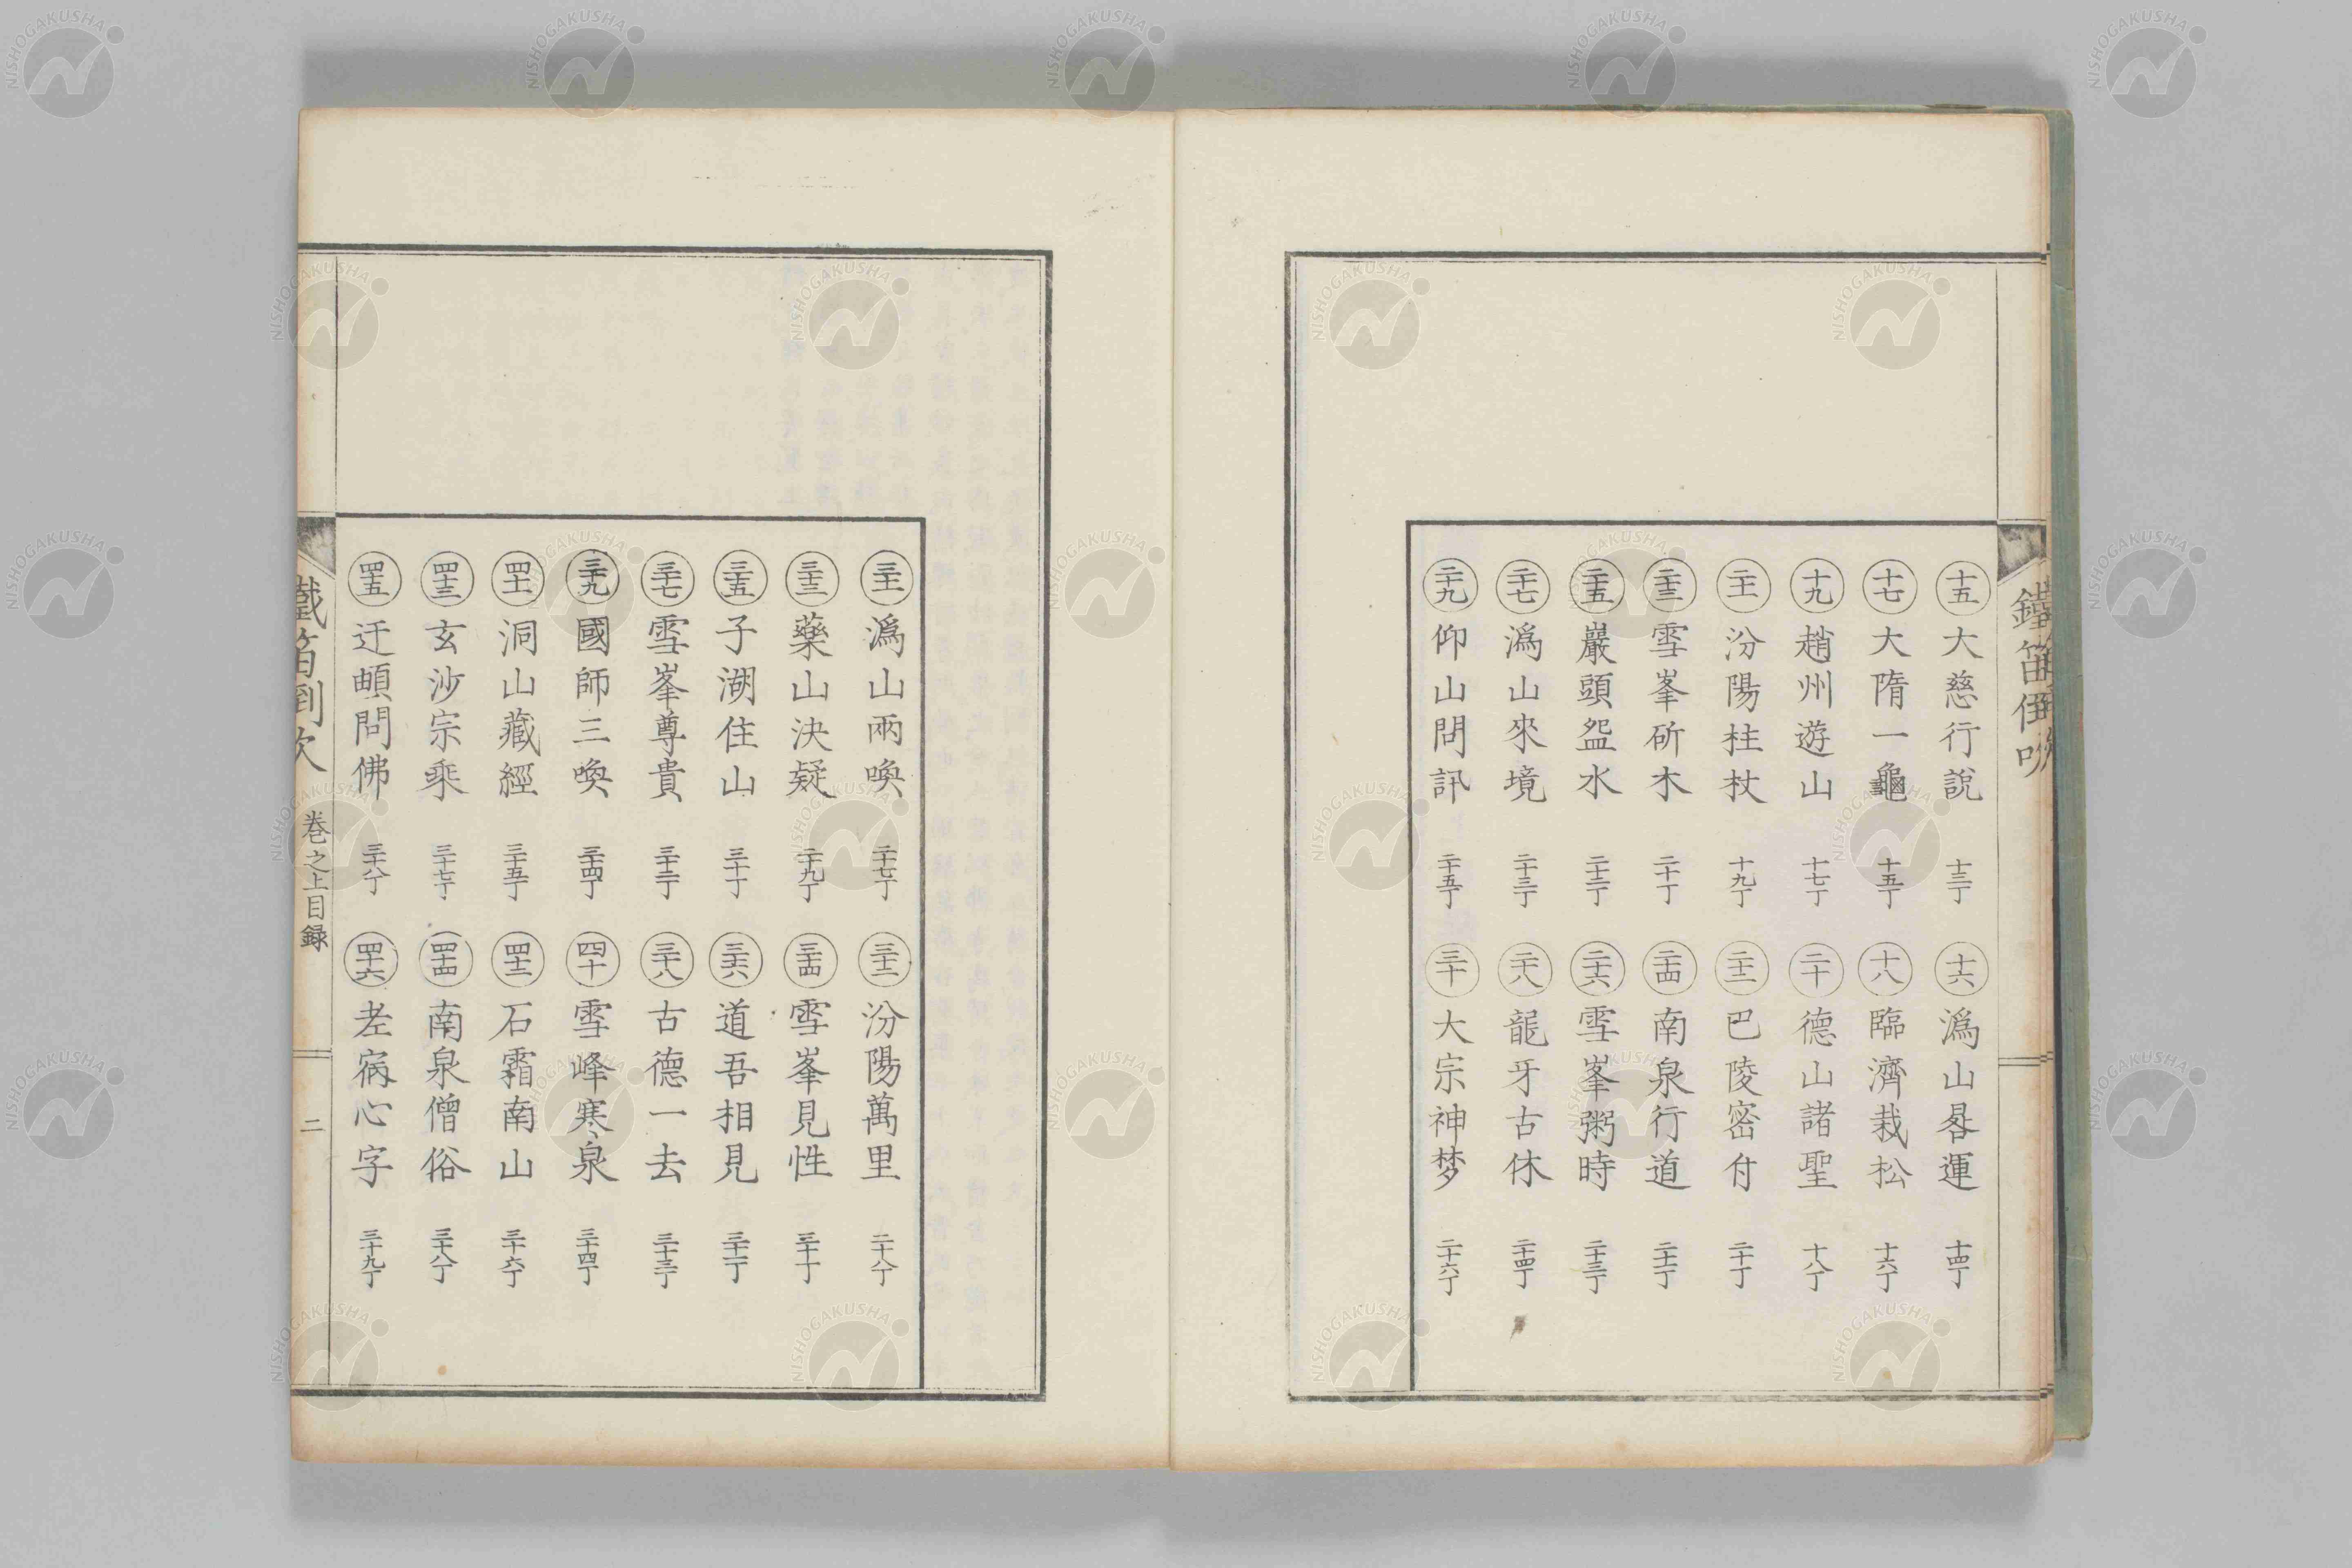 鐵笛倒吹
十五 大慈行說 十三丁 十六 潙山晷運 十四丁
十七 大隋一龜 十五丁 十八 臨濟栽松 十六丁
十九 趙州遊山 十七丁 二十 德山諸聖 十八丁
二十一 汾陽柱杖 十九丁 二十二 巴陵密付 二十丁
二十三 雪峯斫木 二十丁 二十四 南泉行道 二十一丁
二十五 巖頭盌水 二十二丁 二十六 雪峯粥時 二十三丁
二十七 潙山來境 二十三丁 二十八 龍牙古休 二十四丁
二十九 仰山問訊 二十五丁 三十 大宗神梦 二十六丁
三十一 潙山兩喚 二十七丁 三十二 汾陽萬里 二十八丁
三十三 藥山決疑 二十九丁 三十四 雪峯見性 三十丁
三十五 子湖住山 三十丁 三十六 道吾相見 三十一丁
三十七 雪峯尊貴 三十二丁 三十八 古德一去 三十三丁
三十九 國師三喚 三十四丁 四十 雪峰寒泉 三十四丁
四十一 洞山藏經 三十五丁 四十二 石霜南山 三十六丁
四十三 玄沙宗乘 三十七丁 四十四 南泉僧俗 三十八丁
四十五 迂頔問佛 三十八丁 四十六 老病心字 三十九丁
鐵笛倒吹 卷之上目録 二
NISHOGAKUSHA